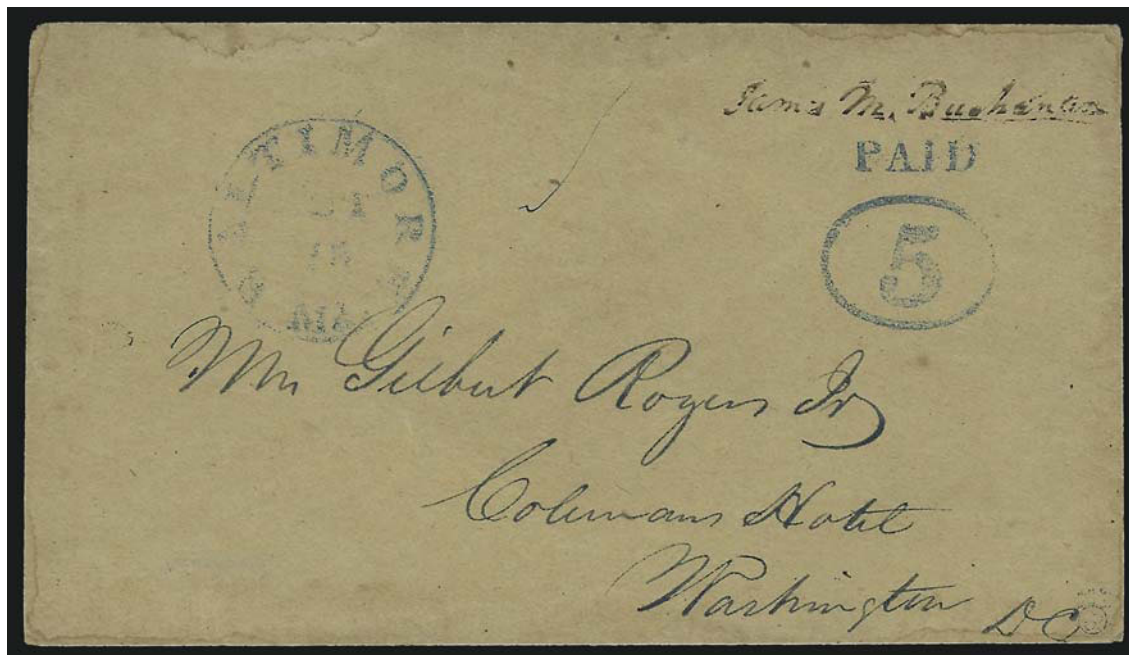 James M. Buchanan
PAID
5
BALTIMORE
Md.
Mr Gilbert Rogers Jr
Colemans Hotel
Washington DC